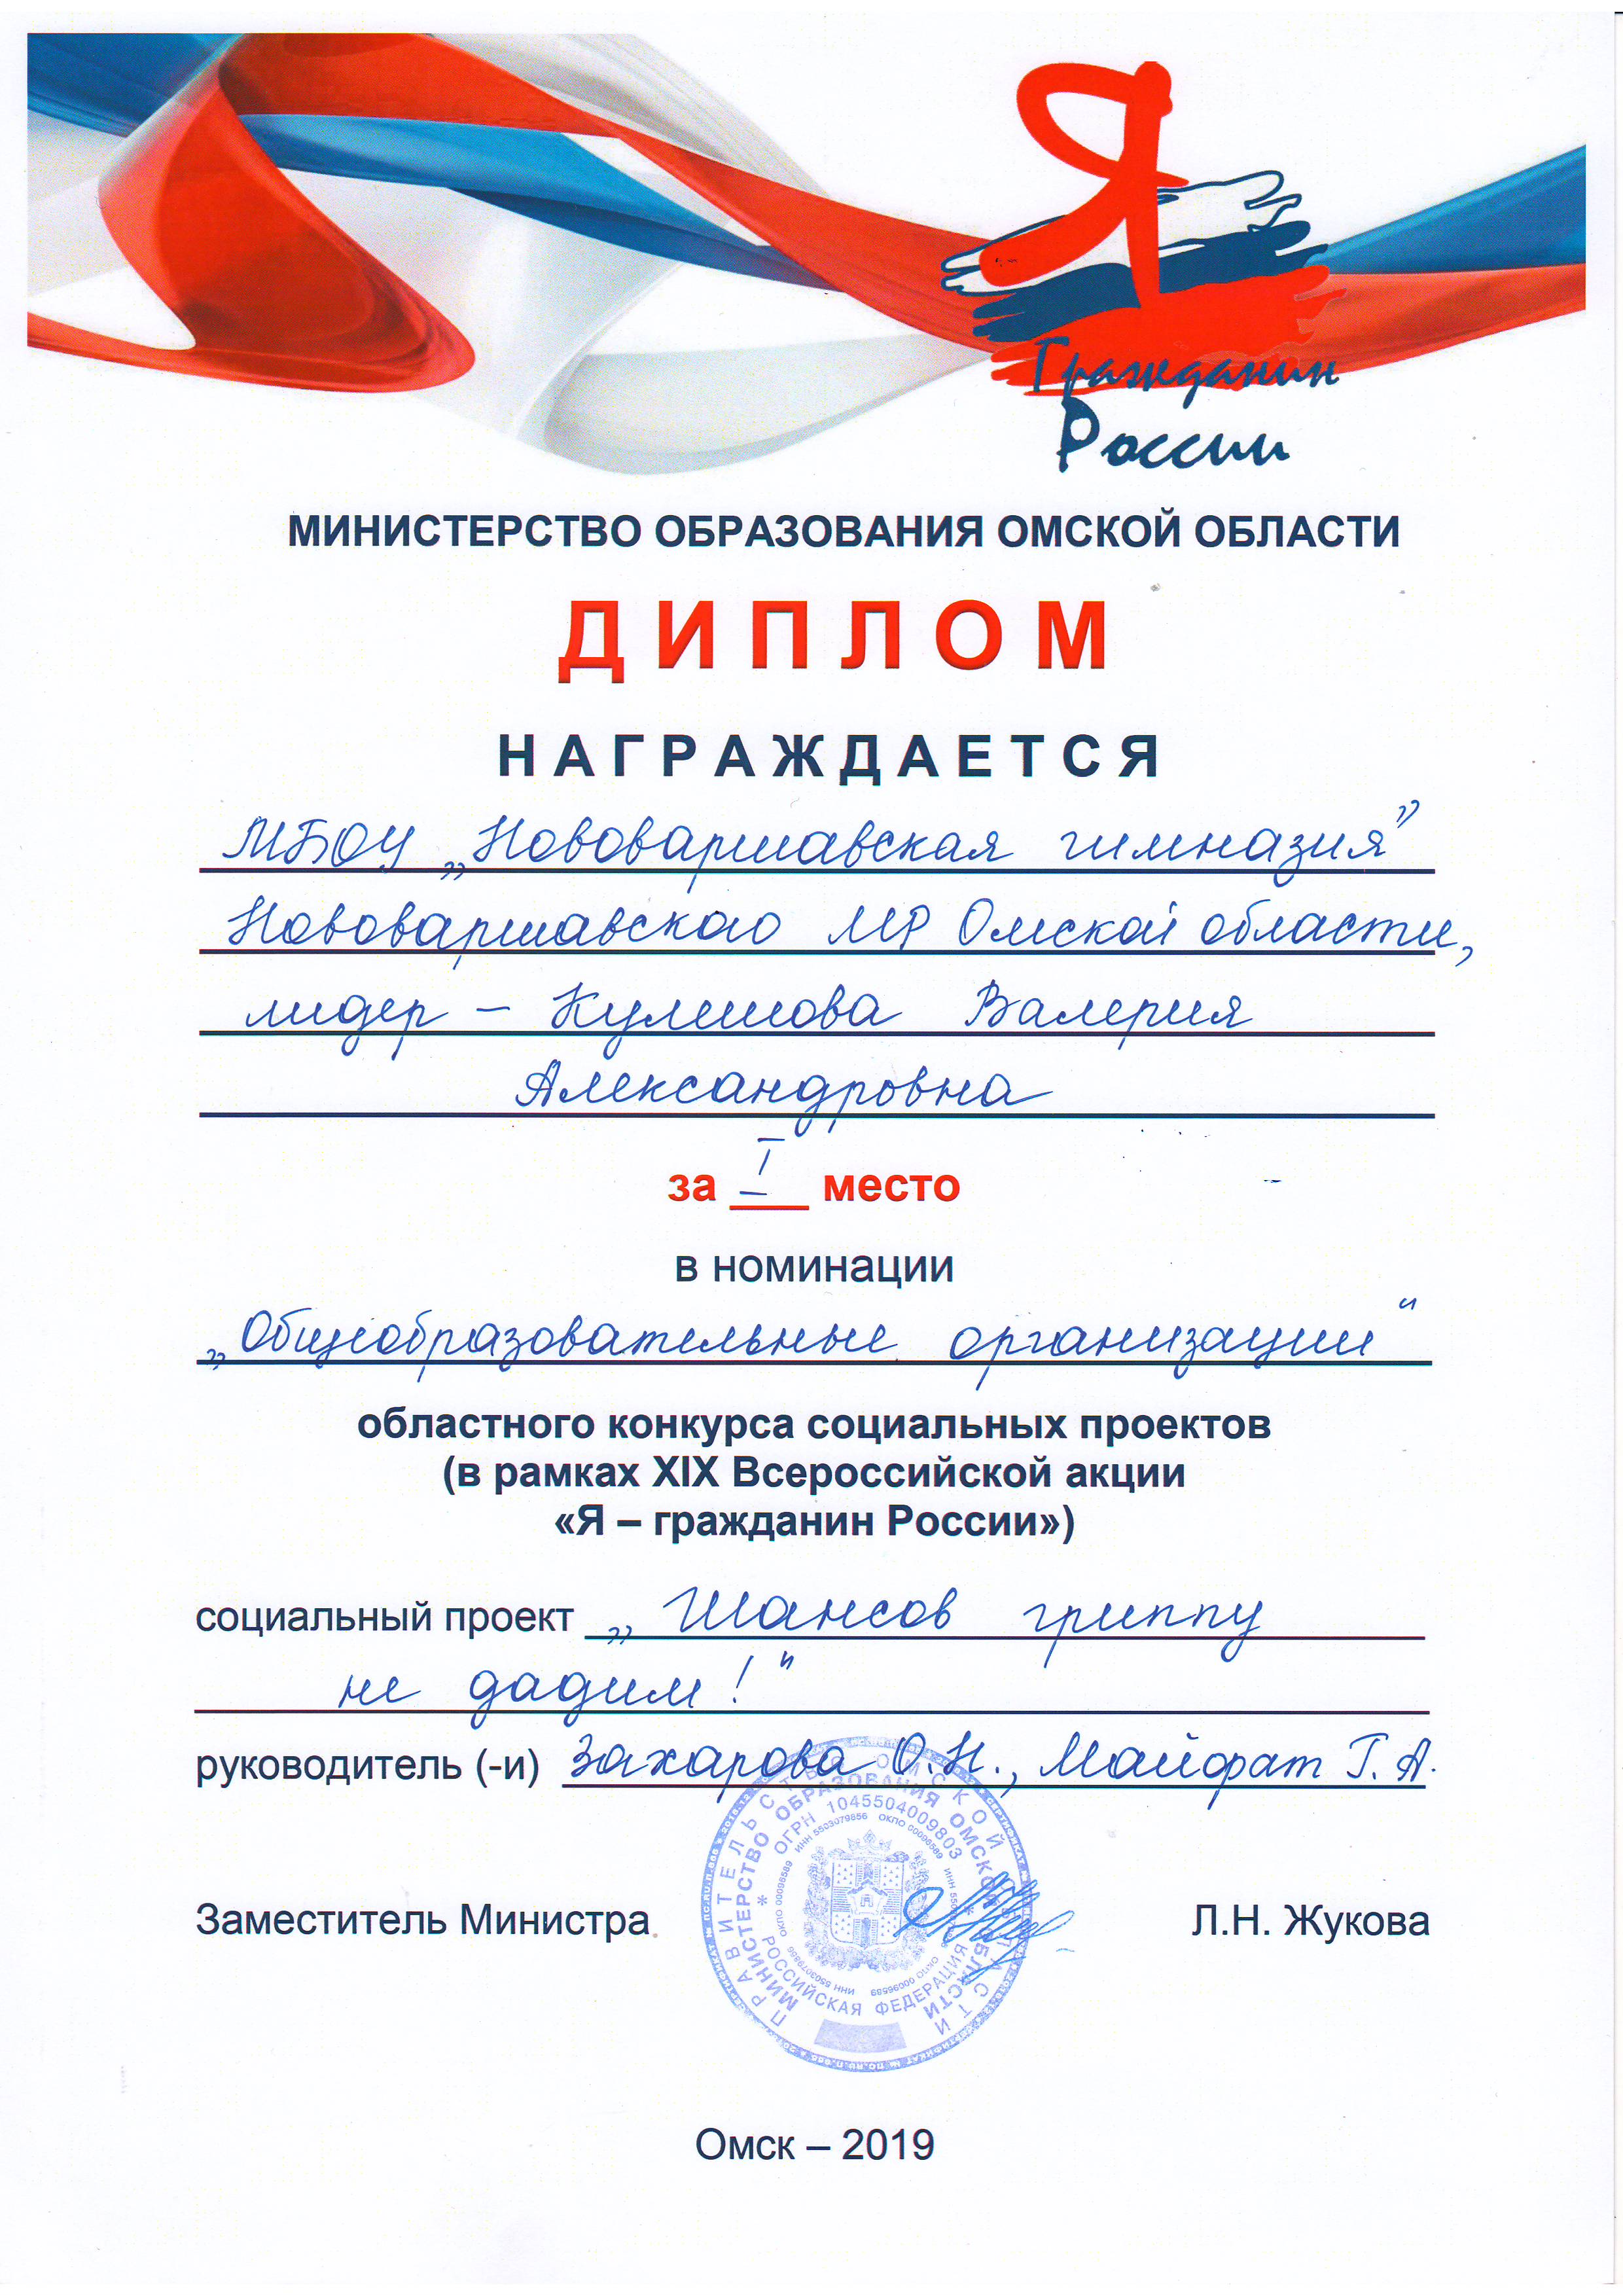 Я
Гражданин
России
МИНИСТЕРСТВО ОБРАЗОВАНИЯ ОМСКОЙ ОБЛАСТИ
ДИПЛОМ
НАГРАЖДАЕТСЯ
МБОУ „Нововаршавская гимназия”
Нововаршавского МР Омской области,
лидер – Кулешова Валерия
Александровна
за I место
в номинации
„Общеобразовательные организации“
областного конкурса социальных проектов
(в рамках XIX Всероссийской акции
«Я – гражданин России»)
социальный проект „Шансов гриппу
не дадим!“
руководитель (-и) Захарова О.Н., Майфат Г.А.
ПРАВИТЕЛЬСТВО ОМСКОЙ ОБЛАСТИ
МИНИСТЕРСТВО ОБРАЗОВАНИЯ ОМСКОЙ ОБЛАСТИ
ОГРН 1045504009803
РОССИЙСКАЯ ФЕДЕРАЦИЯ
ИНН 5503079856 ОКПО 00096589
Заместитель Министра Л.Н. Жукова
Омск – 2019